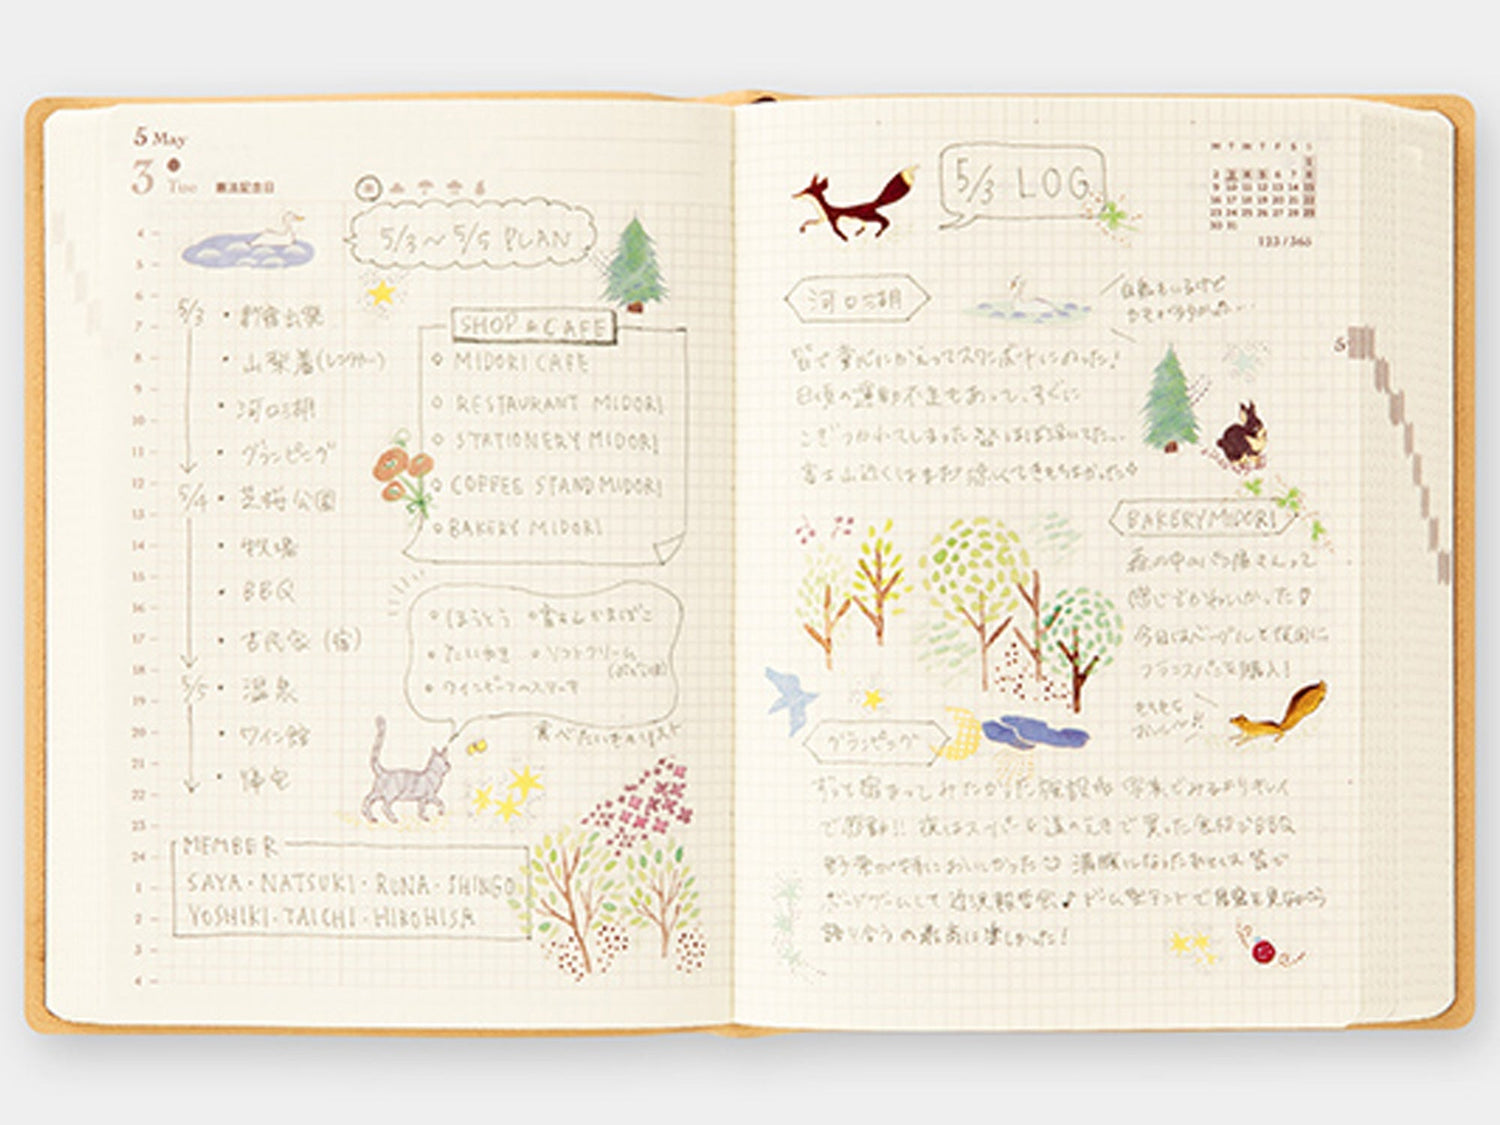 5 May
3 Tue 憲法記念日
5/3〜5/5 PLAN
4
5
6
7
8
9
10
11
12
13
14
15
16
17
18
19
20
21
22
23
24
1
2
3
4
5/3 ・新宿出発
・山梨着(レンタカー)
・河口湖
・グランピング
5/4 ・芝桜公園
・牧場
・BBQ
・古民家(宿)
5/5 ・温泉
・ワイン館
・帰宅
SHOP & CAFE
MIDORI CAFE
RESTAURANT MIDORI
STATIONERY MIDORI
COFFEE STAND MIDORI
BAKERY MIDORI
ほうとう 富士山かまぼこ
たいやき ソフトクリーム
ワインビーフのステーキ
食べたいものリスト
MEMBER
SAYA・NATSUKI・RUNA・SHINGO
YOSHIKI・TAICHI・HIROHISA
5/3 LOG
M T W T F S S
1
2 3 4 5 6 7 8
9 10 11 12 13 14 15
16 17 18 19 20 21 22
23 24 25 26 27 28 29
30 31
123/365
河口湖
白鳥もいるけど
皆で童心にかえってスワンボートにのった!
日頃の運動不足もあって、すぐに
こぎつかれてしまった
富士山近くはまだ涼しくてきもちよかった
5
BAKERY MIDORI
森の中のパン屋さんって
感じでかわいかった
今日はベーグルと
フランスパンを購入!
もちもち
おいしい!!
グランピング
ずっと泊まってみたかった施設
で感動!! 夜はスーパーや道のえきで買った食材でBBQ
野菜が特においしかった 満腹になったあとは皆で
ボードゲームして近況報告会♪ ドーム型テントで星空を見ながら
語り合うの最高に楽しかった!